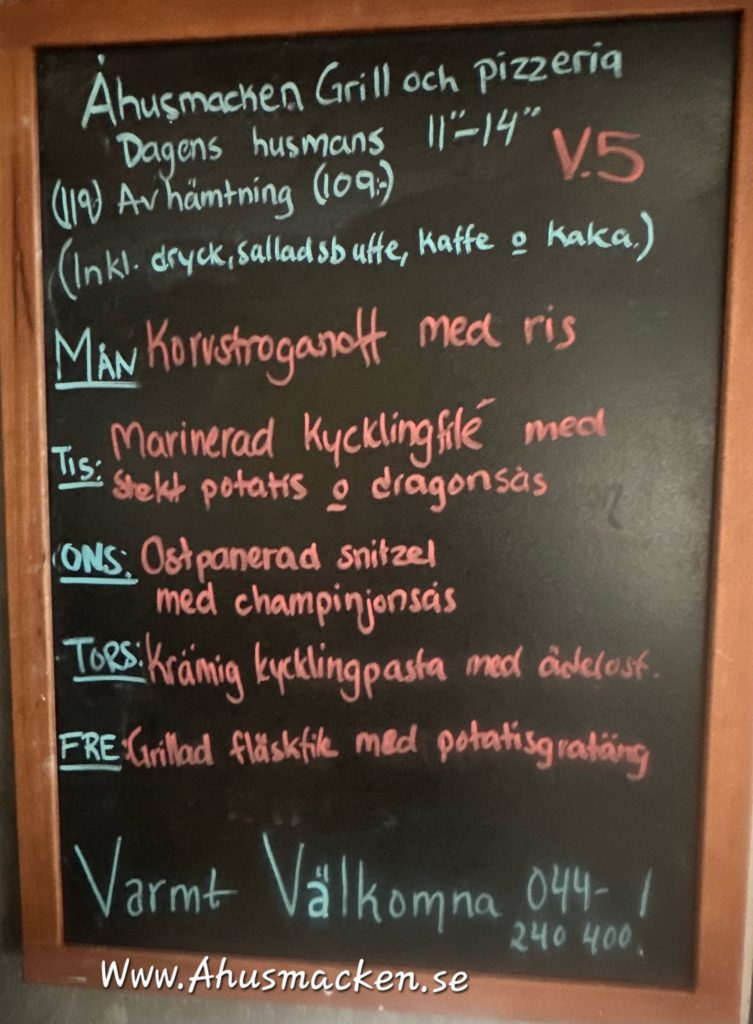 Åhusmacken Grill och pizzeria
Dagens husmans 11"-14"
V.5
(119) Avhämtning (109:-)
(Inkl. dryck, salladsbuffe, kaffe o kaka.)
MÅN Korvstroganoff med ris
TIS: Marinerad kycklingfilé med
stekt potatis o dragonsås
ONS: Ostpanerad snitzel
med champinjonsås
TORS: Krämig kycklingpasta med ädelost.
FRE: Grillad fläskfile med potatisgratäng
Varmt Välkomna 044- /
240 400.
Www.Åhusmacken.se